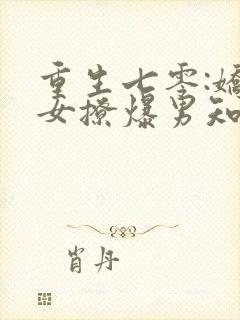 重生七零:娇
女撩爆男知
肖丹